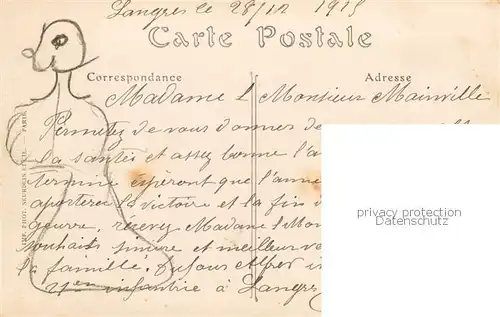 Langres le 28/12 1915
Carte Postale
Correspondance
Adresse
Madame & Monsieur Mainville
Permettez de vous donner de
la santés et assez bonne l'a
termine espéront que l'anné
aportera la victoire et la fin d
guerre, recevez Madame & Mon
souhaits sincère et meilleur v
la famille. Alfred
infantrie à Langres
PARIS
privacy protection
Datenschutz